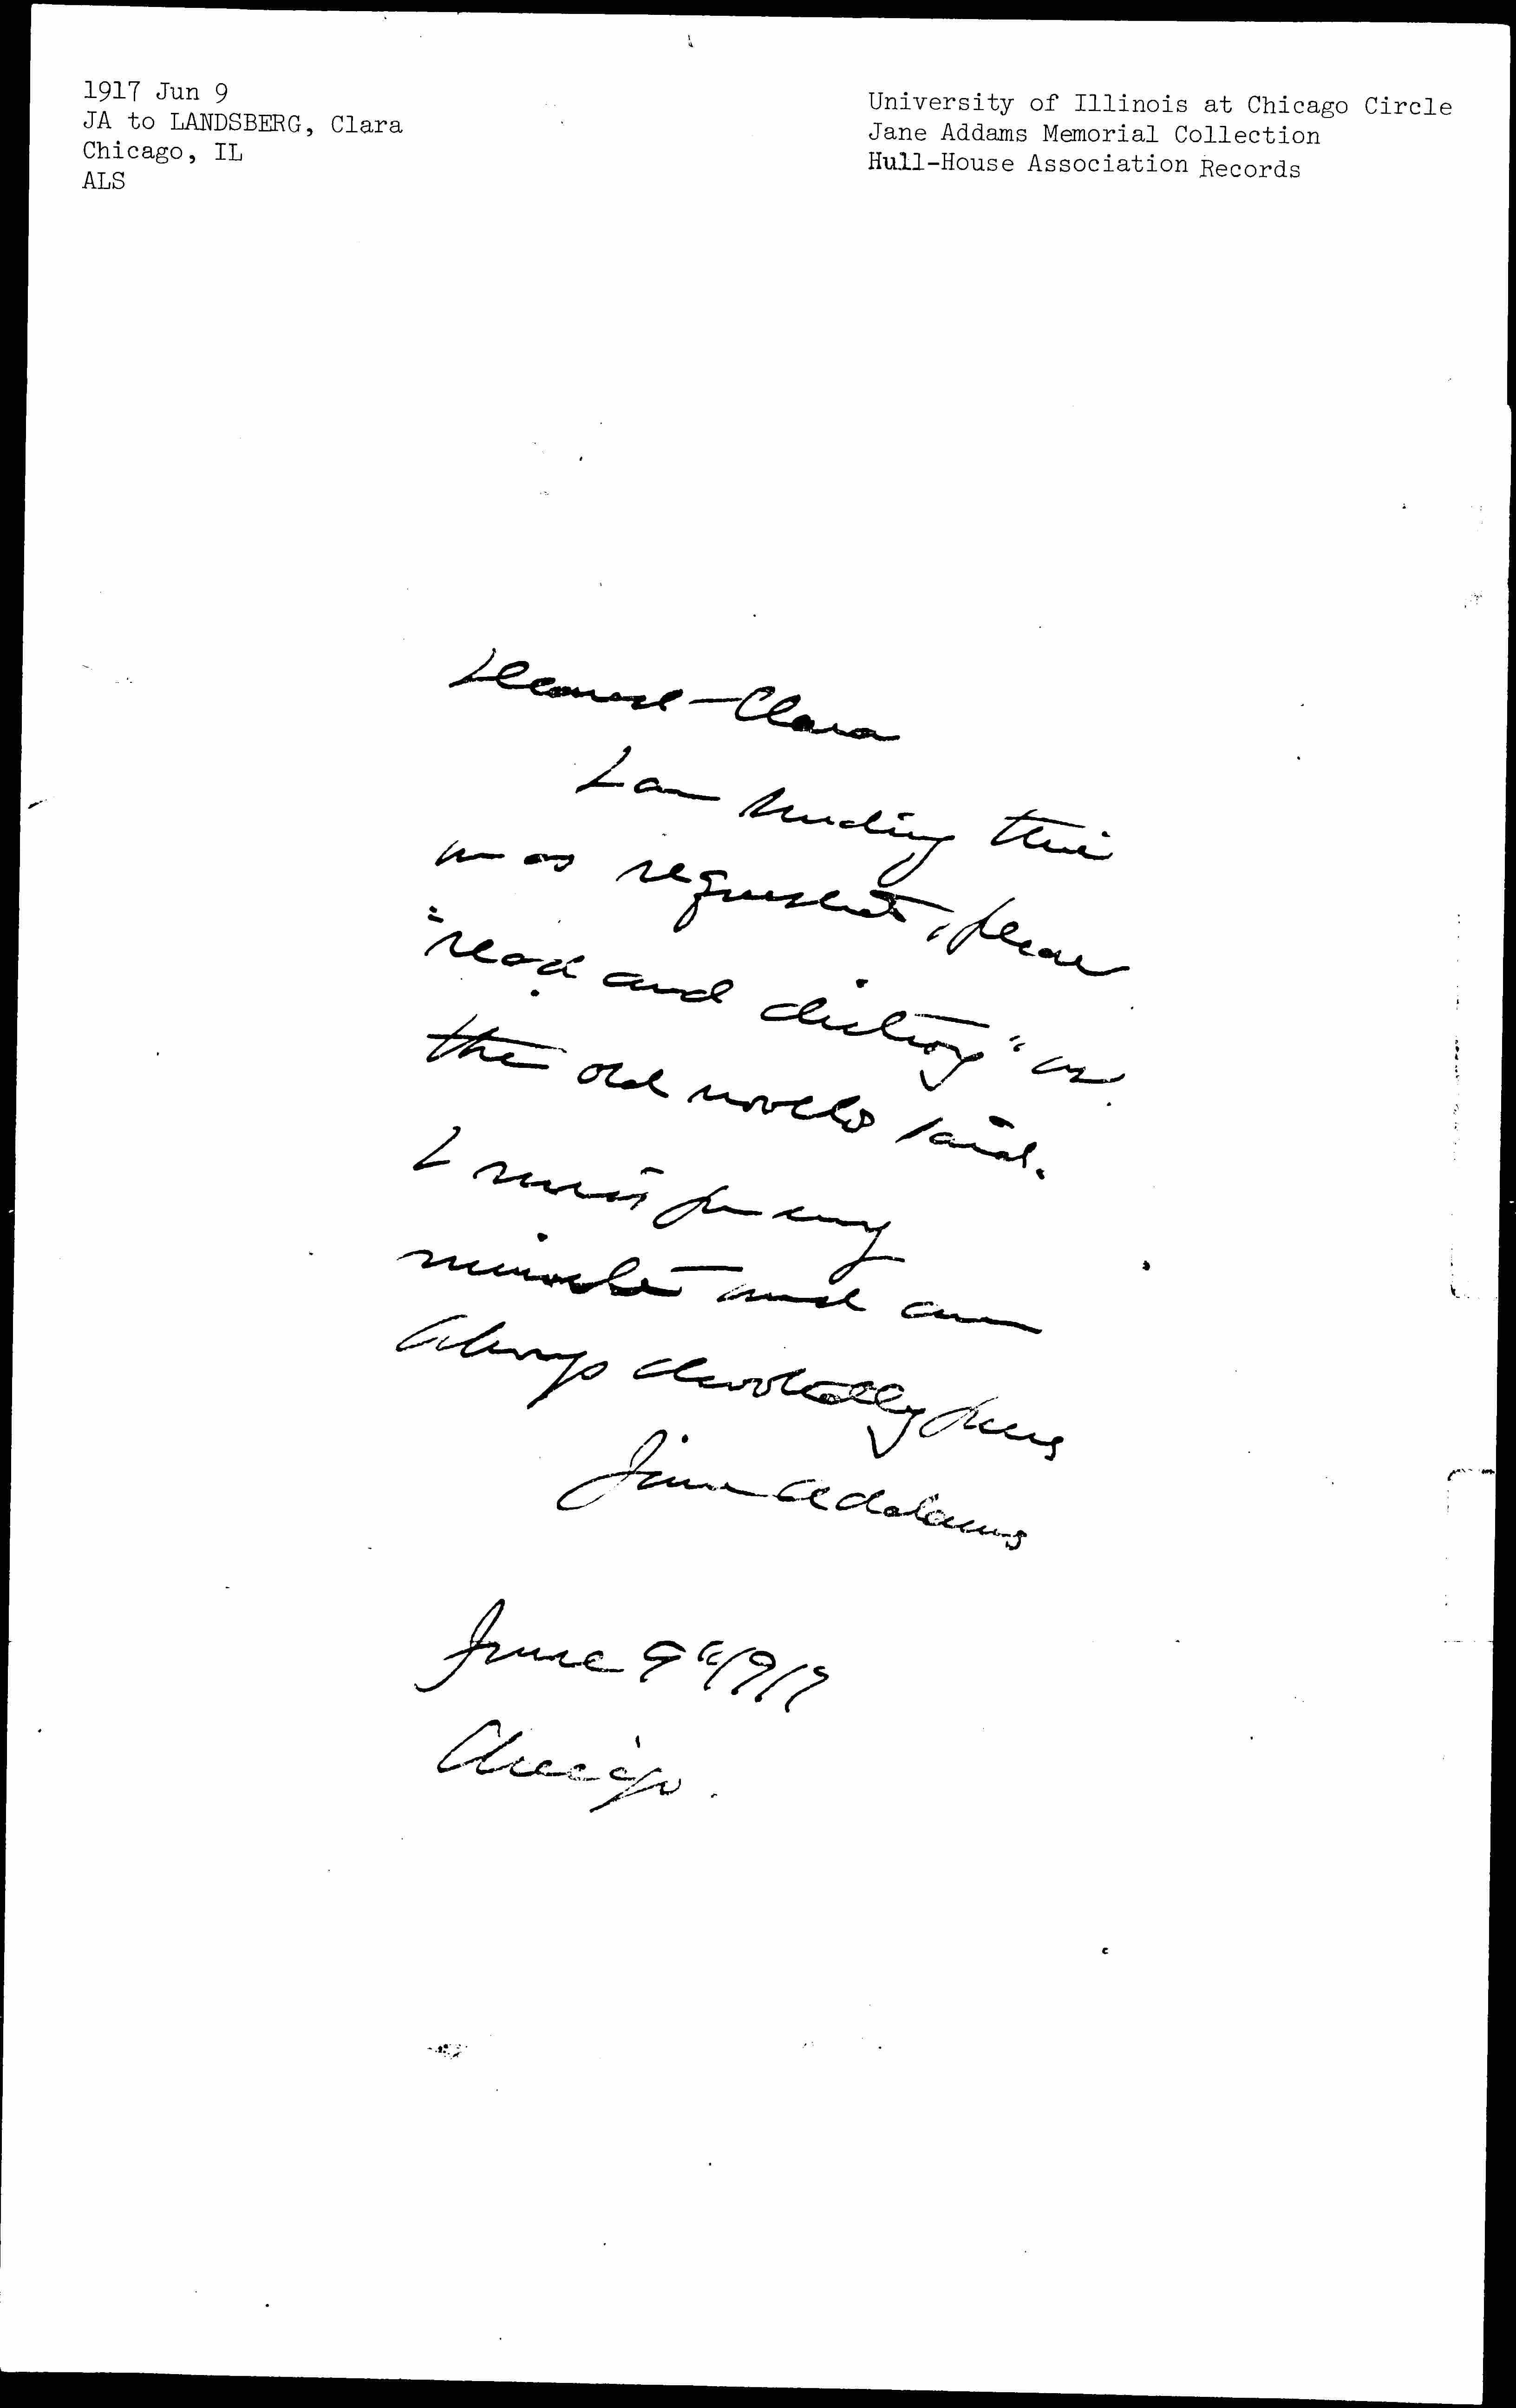 1917 Jun 9
JA to LANDSBERG, Clara
Chicago, IL
ALS
University of Illinois at Chicago Circle
Jane Addams Memorial Collection
Hull-House Association Records
Dearest - Clara
I am sending this
on as requested, please
"read and destroy" as
the old novels said.
I miss you every
minute and am
always devotedly yours
Jane Addams
June 9" 1917
Chicago.